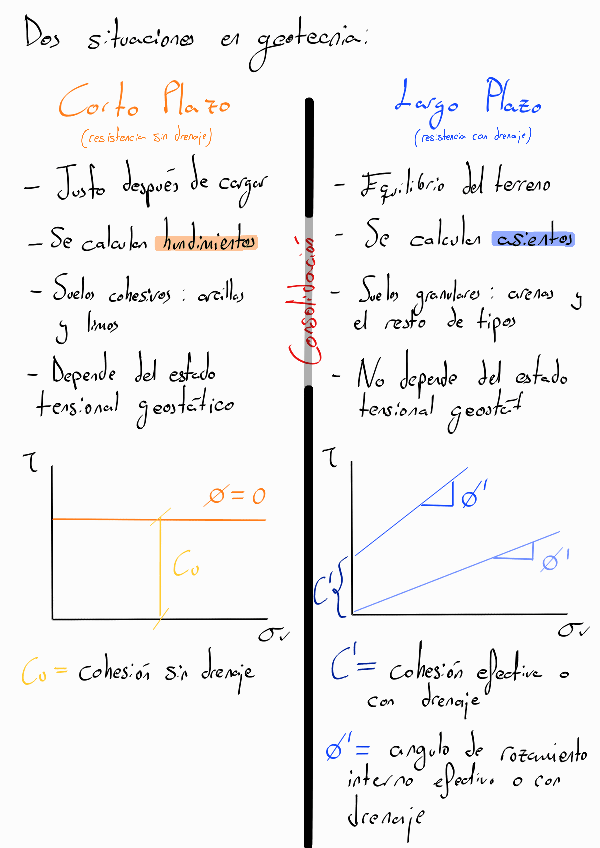 Dos situaciones en geotecnia:
Corto Plazo
(resistencia sin drenaje)
- Justo después de cargar
- Se calculan hundimientos
- Suelos cohesivos: arcillas
y limos
- Depende del estado
tensional geostático
τ
ø = 0
Cu
σv
Cu = cohesión sin drenaje
Consolidación
Largo Plazo
(resistencia con drenaje)
- Equilibrio del terreno
- Se calculan asientos
- Suelos granulares: arenas y
el resto de tipos
- No depende del estado
tensional geostát
τ
ø'
ø'
C'
σv
C' = cohesión efectiva o
con drenaje
ø' = angulo de rozamiento
interno efectivo o con
drenaje